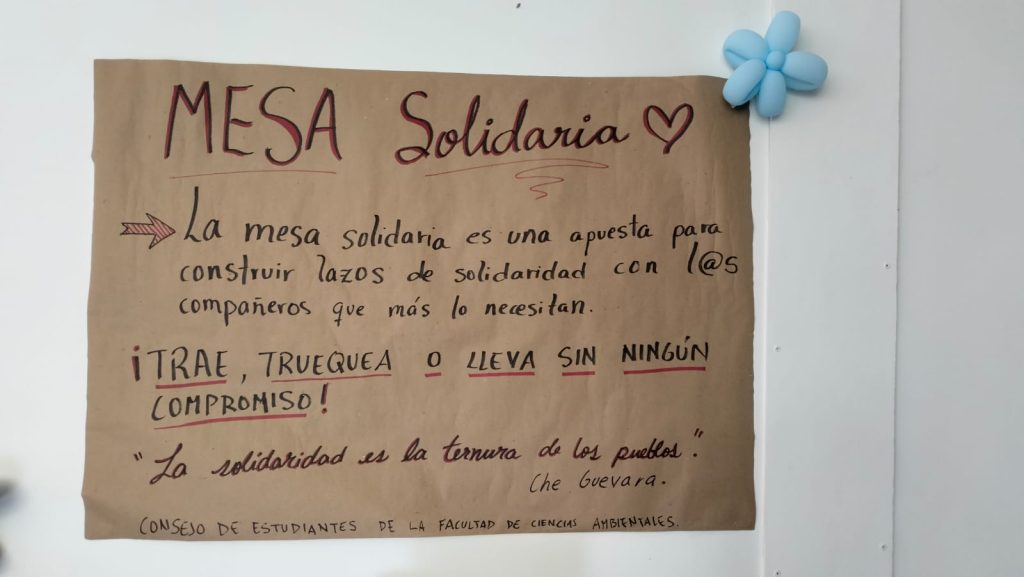 MESA Solidaria
La mesa solidaria es una apuesta para
construir lazos de solidaridad con l@s
compañeros que más lo necesitan.
¡TRAE, TRUEQUEA O LLEVA SIN NINGÚN
COMPROMISO!
"La solidaridad es la ternura de los pueblos".
Che Guevara.
CONSEJO DE ESTUDIANTES DE LA FACULTAD DE CIENCIAS AMBIENTALES.